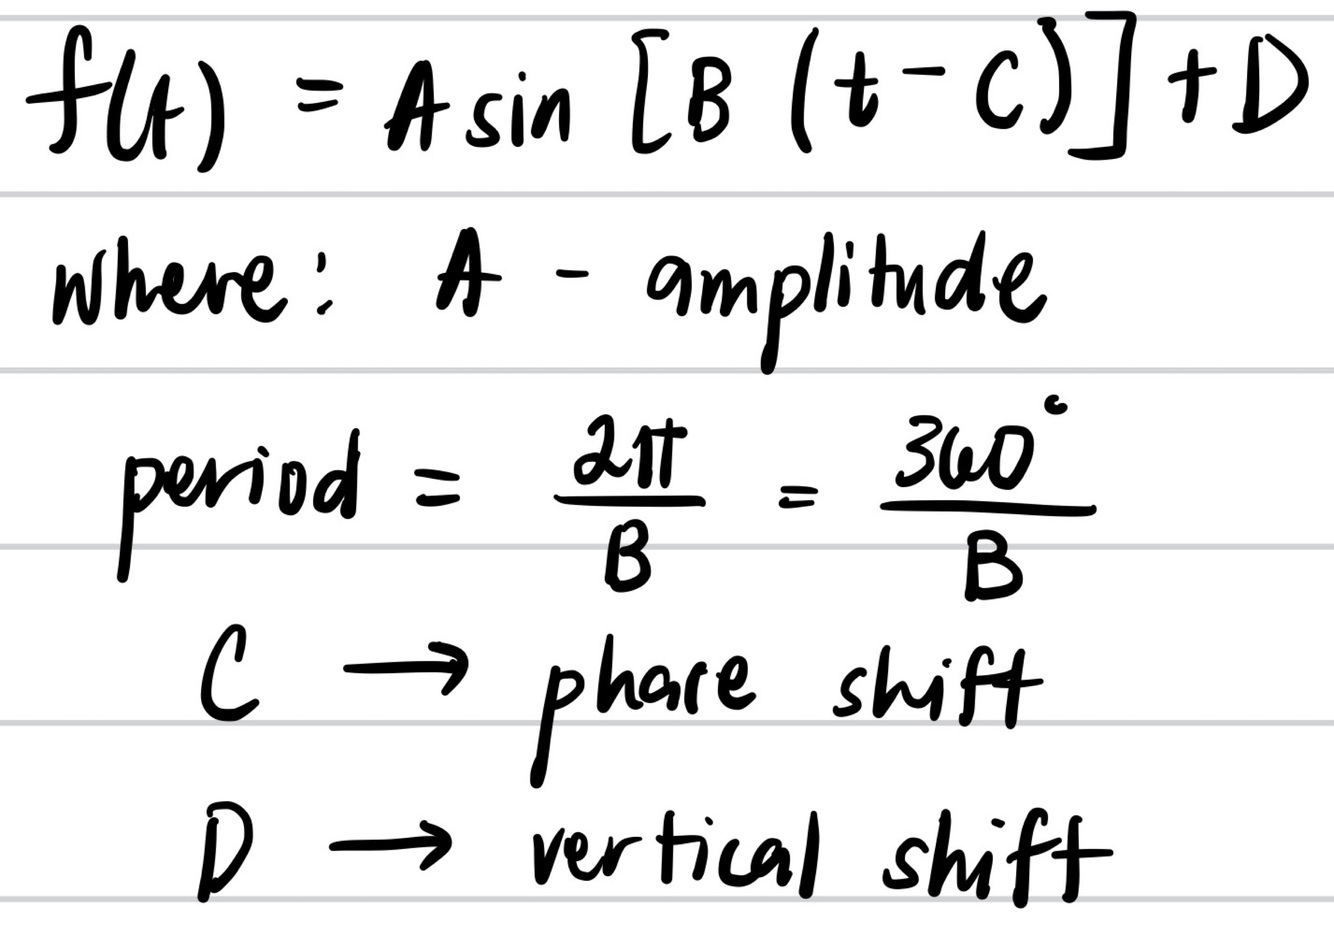 f(t) = A sin [B (t - C)] + D
where: A - amplitude
period = 2π/B = 360°/B
C → phase shift
D → vertical shift